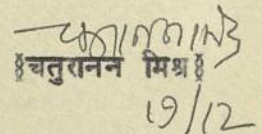 चतुरानन मिश्र
19/12